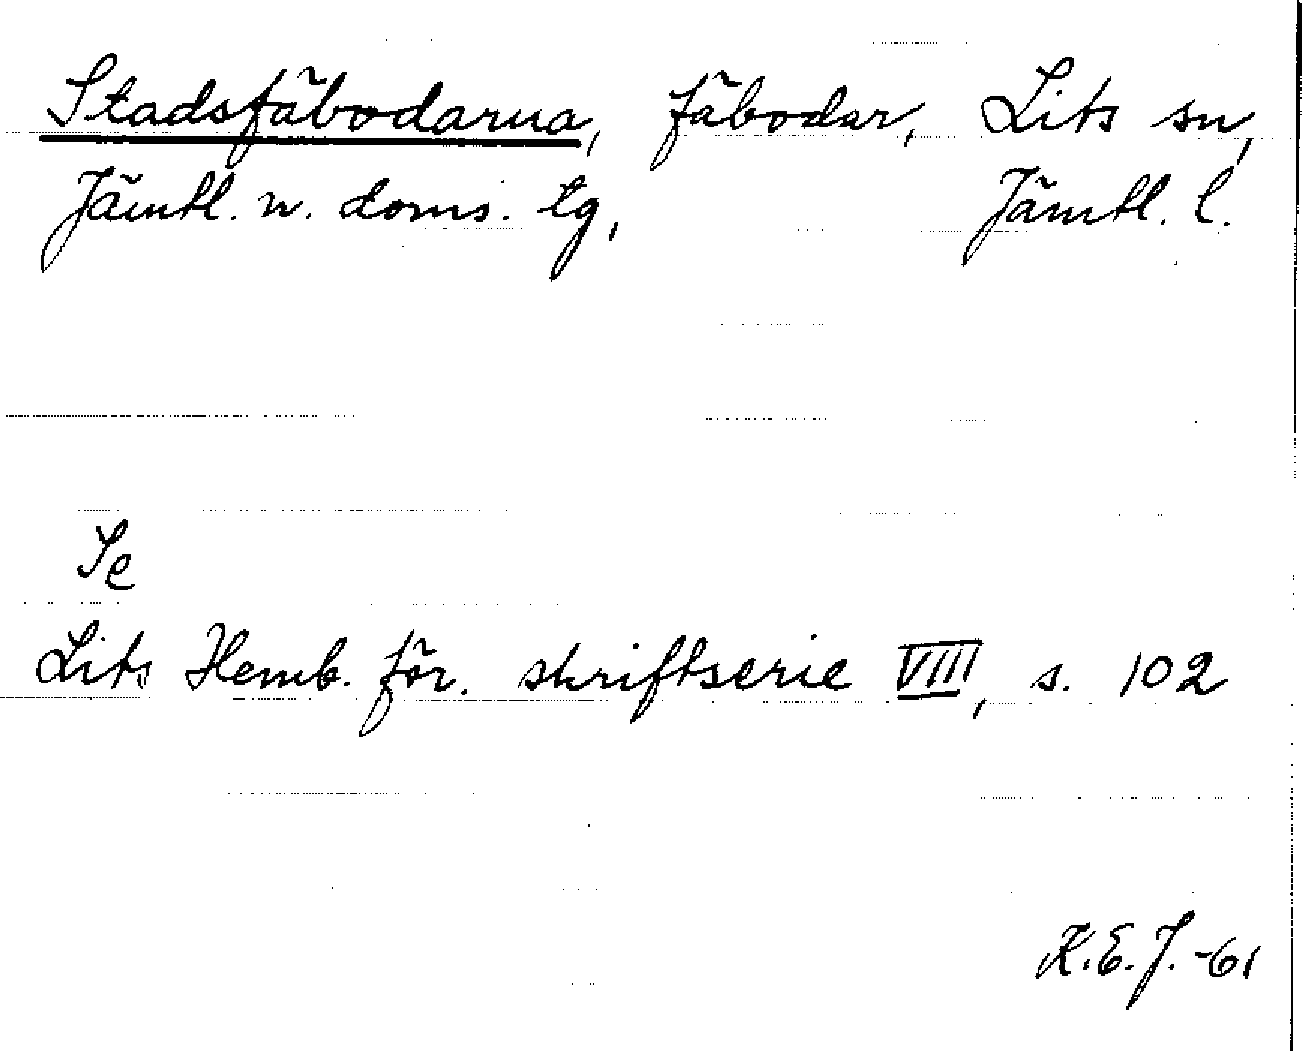 Stadsfäbodarna, fäbodar, Lits sn,
Jämtl. n. doms. tg, Jämtl. l.
Se
Lits Hemb. för. skriftserie VIII, s. 102
K.E.J. -61